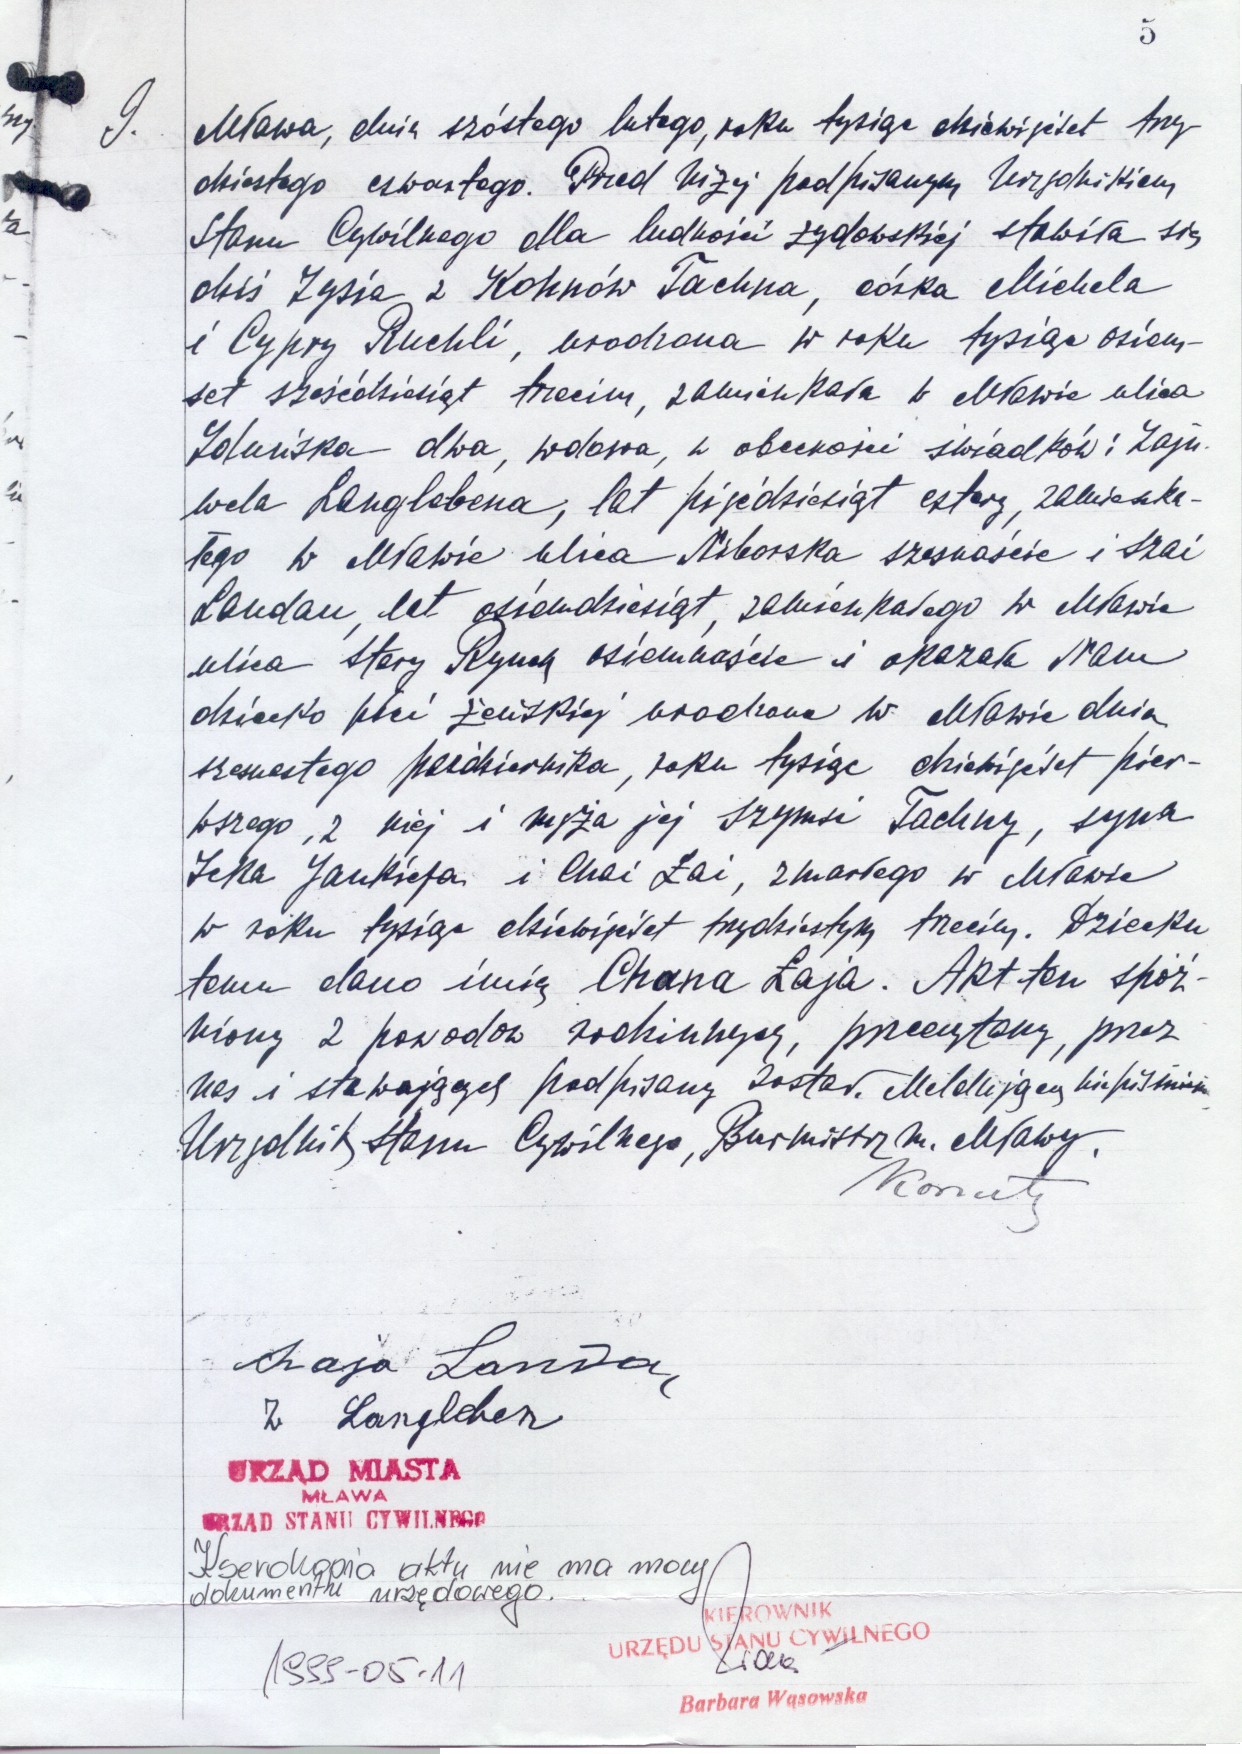 5
9.
Mława, dnia szóstego lutego, roku tysiąc dziewięćset trzy
dziestego czwartego. Przed niżej podpisanym Urzędnikiem
Stanu Cywilnego dla ludności żydowskiej stawiła się
dziś Zysia z Kohnów Tachna, córka Michela
i Cypry Ruchli, urodzona w roku tysiąc osiem-
set sześćdziesiąt trzecim, zamieszkała w Mławie ulica
Zduńska dwa, wdowa, w obecności świadków: Zajn-
wela Langlebena, lat pięćdziesiąt cztery, zamieszka-
łego w Mławie ulica Niborska szesnaście i Szai
Landau, lat osiemdziesiąt, zamieszkałego w Mławie
ulica Stary Rynek osiemnaście i okazała Nam
dziecko płci żeńskiej urodzone w Mławie dnia
szesnastego października, roku tysiąc dziewięćset pier-
wszego, z niej i męża jej Szymsi Tachny, syna
Icka Jankiefa i Chai Łai, zmarłego w Mławie
w roku tysiąc dziewięćset trzydziestym trzecim. Dziecku
temu dano imię Chana Łaja. Akt ten spóź-
niony z powodów rodzinnych, przeczytany, przez
nas i stawających podpisany został. Meldująca niepiśmienna
Urzędnik Stanu Cywilnego, Burmistrz m. Mławy.
Z Langleben
URZĄD MIASTA
MŁAWA
URZĄD STANU CYWILNEGO
Kserokopia aktu nie ma mocy
dokumentu urzędowego.
KIEROWNIK
URZĘDU STANU CYWILNEGO
1999-05-11
Barbara Wąsowska